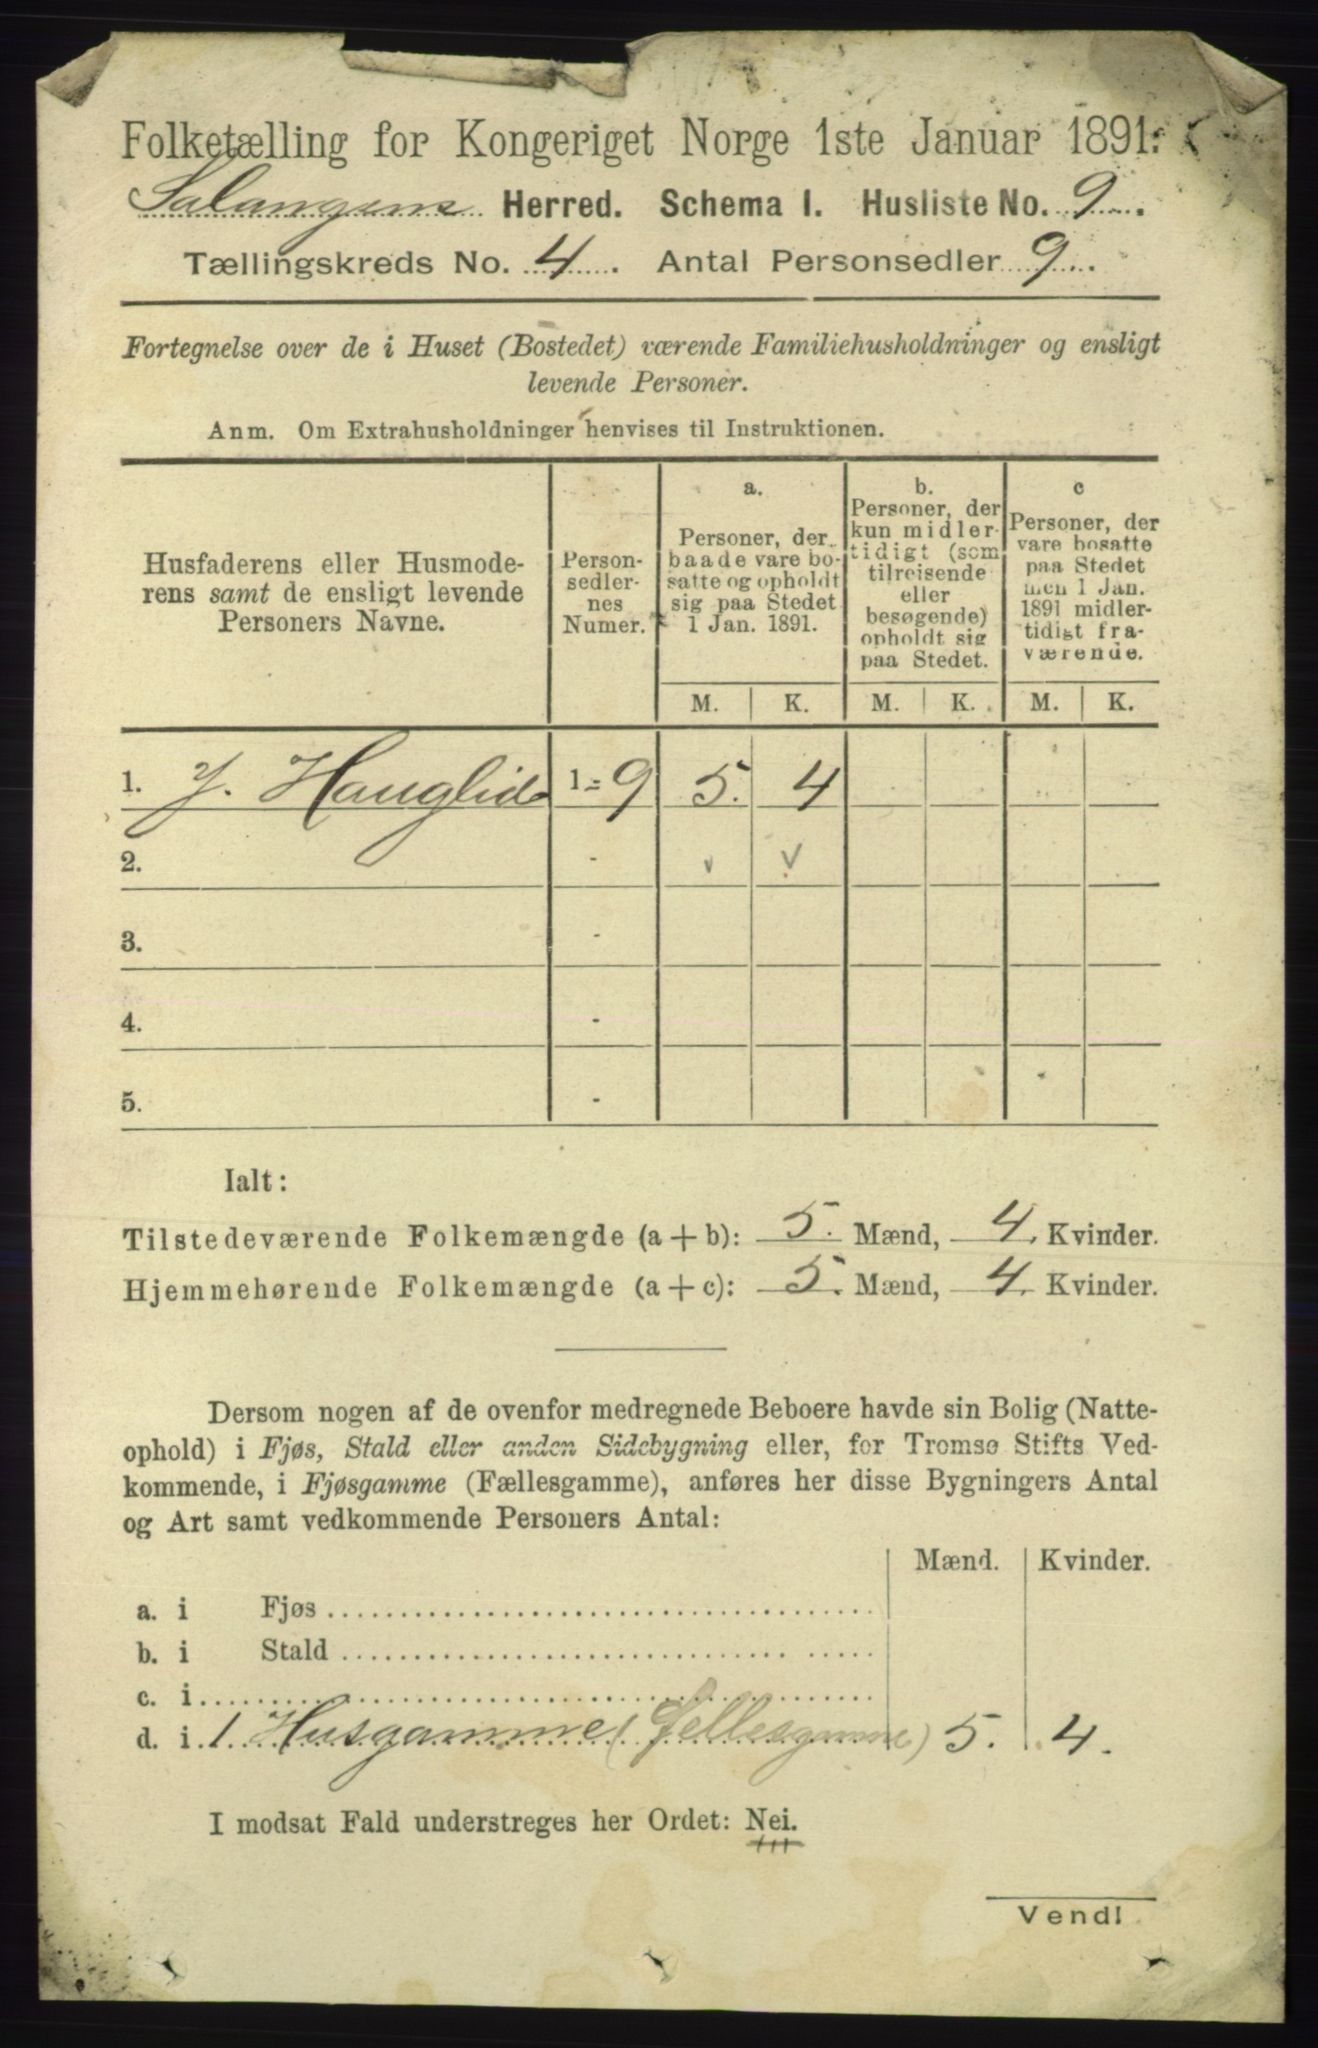 Folketælling for Kongeriget Norge 1ste Januar 1891.
Salangens Herred. Schema I. Husliste No. 9.
Tællingskreds No. 4. Antal Personsedler 9.
Fortegnelse over de i Huset (Bostedet) værende Familiehusholdninger og ensligt
levende Personer.
Anm. Om Extrahusholdninger henvises til Instruktionen.
Husfaderens eller Husmode-
rens samt de ensligt levende
Personers Navne.
Person-
sedler-
nes
Numer.
a.
Personer, der
baade vare bo-
satte og opholdt
sig paa Stedet
1 Jan. 1891.
b.
Personer, der
kun midler-
tidigt (som
tilreisende
eller
besøgende)
opholdt sig
paa Stedet.
c
Personer, der
vare bosatte
paa Stedet
men 1 Jan.
1891 midler-
tidigt fra-
værende.
M. K. M. K. M. K.
1. J. Hauglid 1=9 5. 4
2. - v v
3. -
4. -
5. -
Ialt:
Tilstedeværende Folkemængde (a + b): 5. Mænd, 4. Kvinder.
Hjemmehørende Folkemængde (a + c): 5. Mænd, 4. Kvinder.
Dersom nogen af de ovenfor medregnede Beboere havde sin Bolig (Natte-
ophold) i Fjøs, Stald eller anden Sidebygning eller, for Tromsø Stifts Ved-
kommende, i Fjøsgamme (Fællesgamme), anføres her disse Bygningers Antal
og Art samt vedkommende Personers Antal:
Mænd. Kvinder.
a. i Fjøs
b. i Stald
c. i
d. i 1 Husgamme (fellesgamme) 5. 4.
I modsat Fald understreges her Ordet: Nei.
Vend!